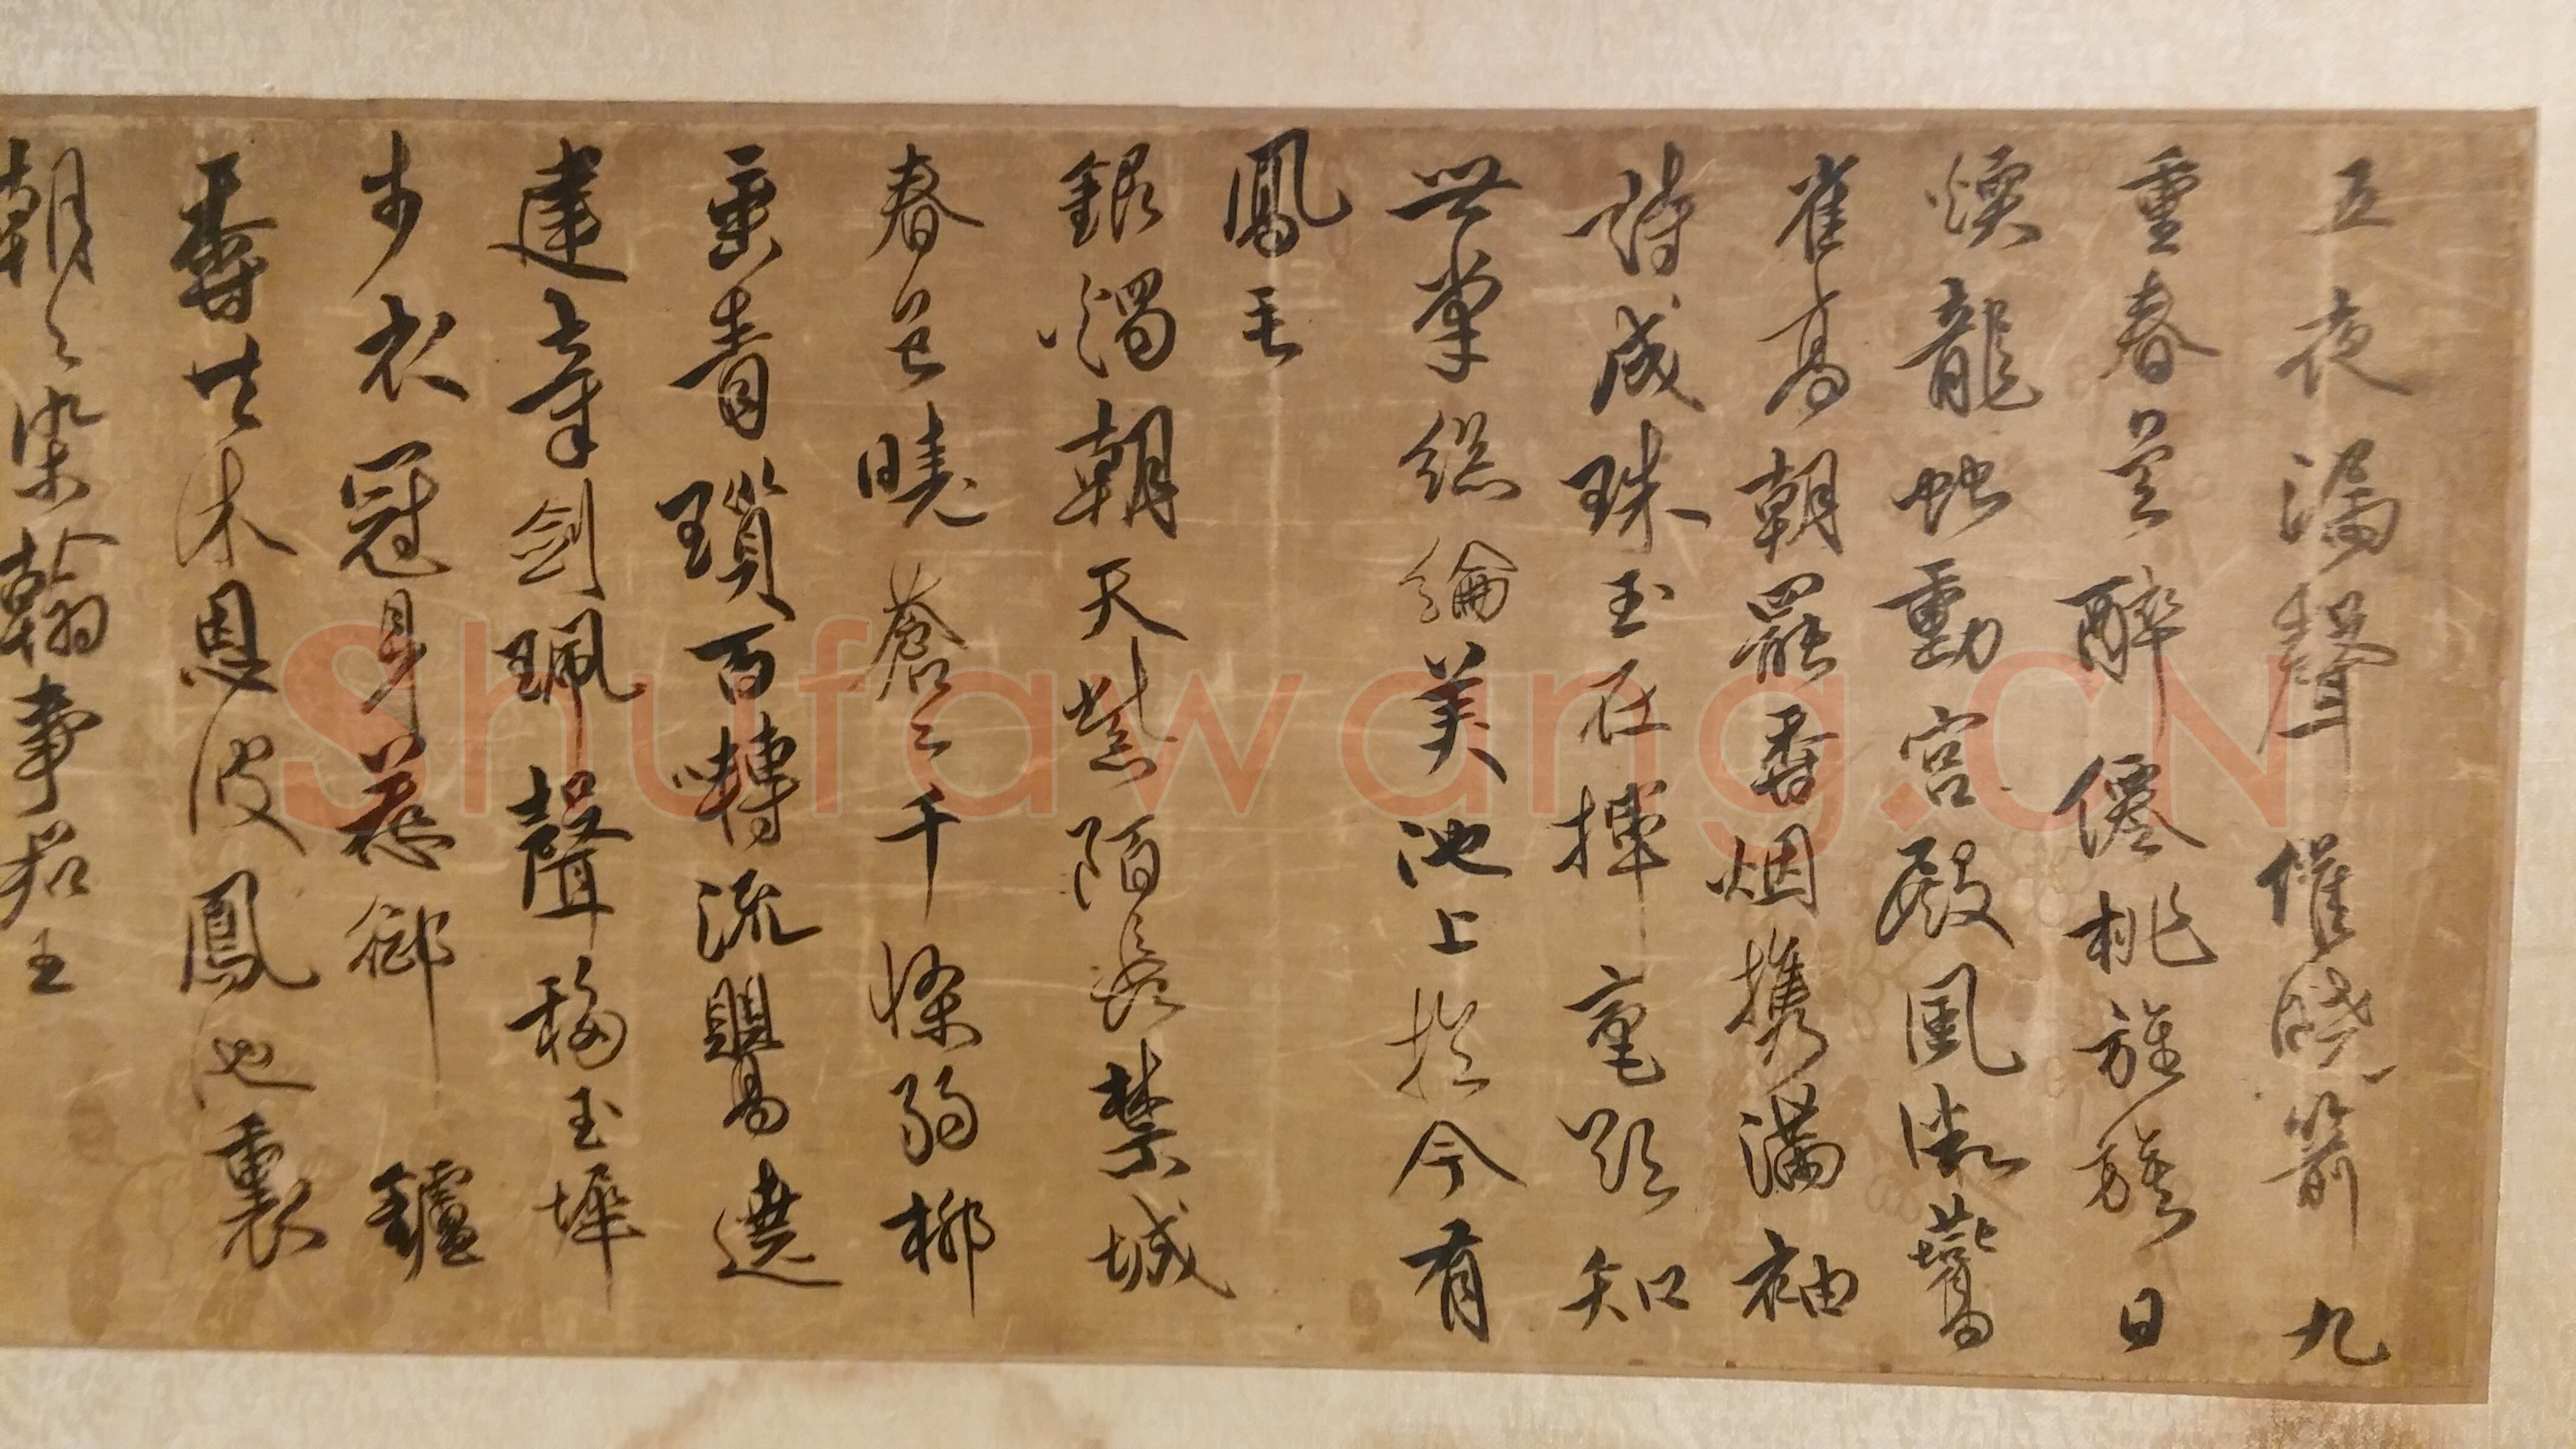 五夜漏聲催曉箭九
重春色醉僊桃旌旗日
煖龍蛇動宮殿風微鷰
雀高朝罷香烟携滿袖
詩成珠玉在揮毫欲知
世掌絲綸美池上扵今有
鳳毛
銀燭朝天紫陌長禁城
春色曉蒼〻千條弱柳
垂青瑣百囀流鸎遶
建章劍珮聲移玉墀
步衣冠身惹御鑪
香共沐恩波鳳池裏
朝〻染翰事君王
Shufawang.CN